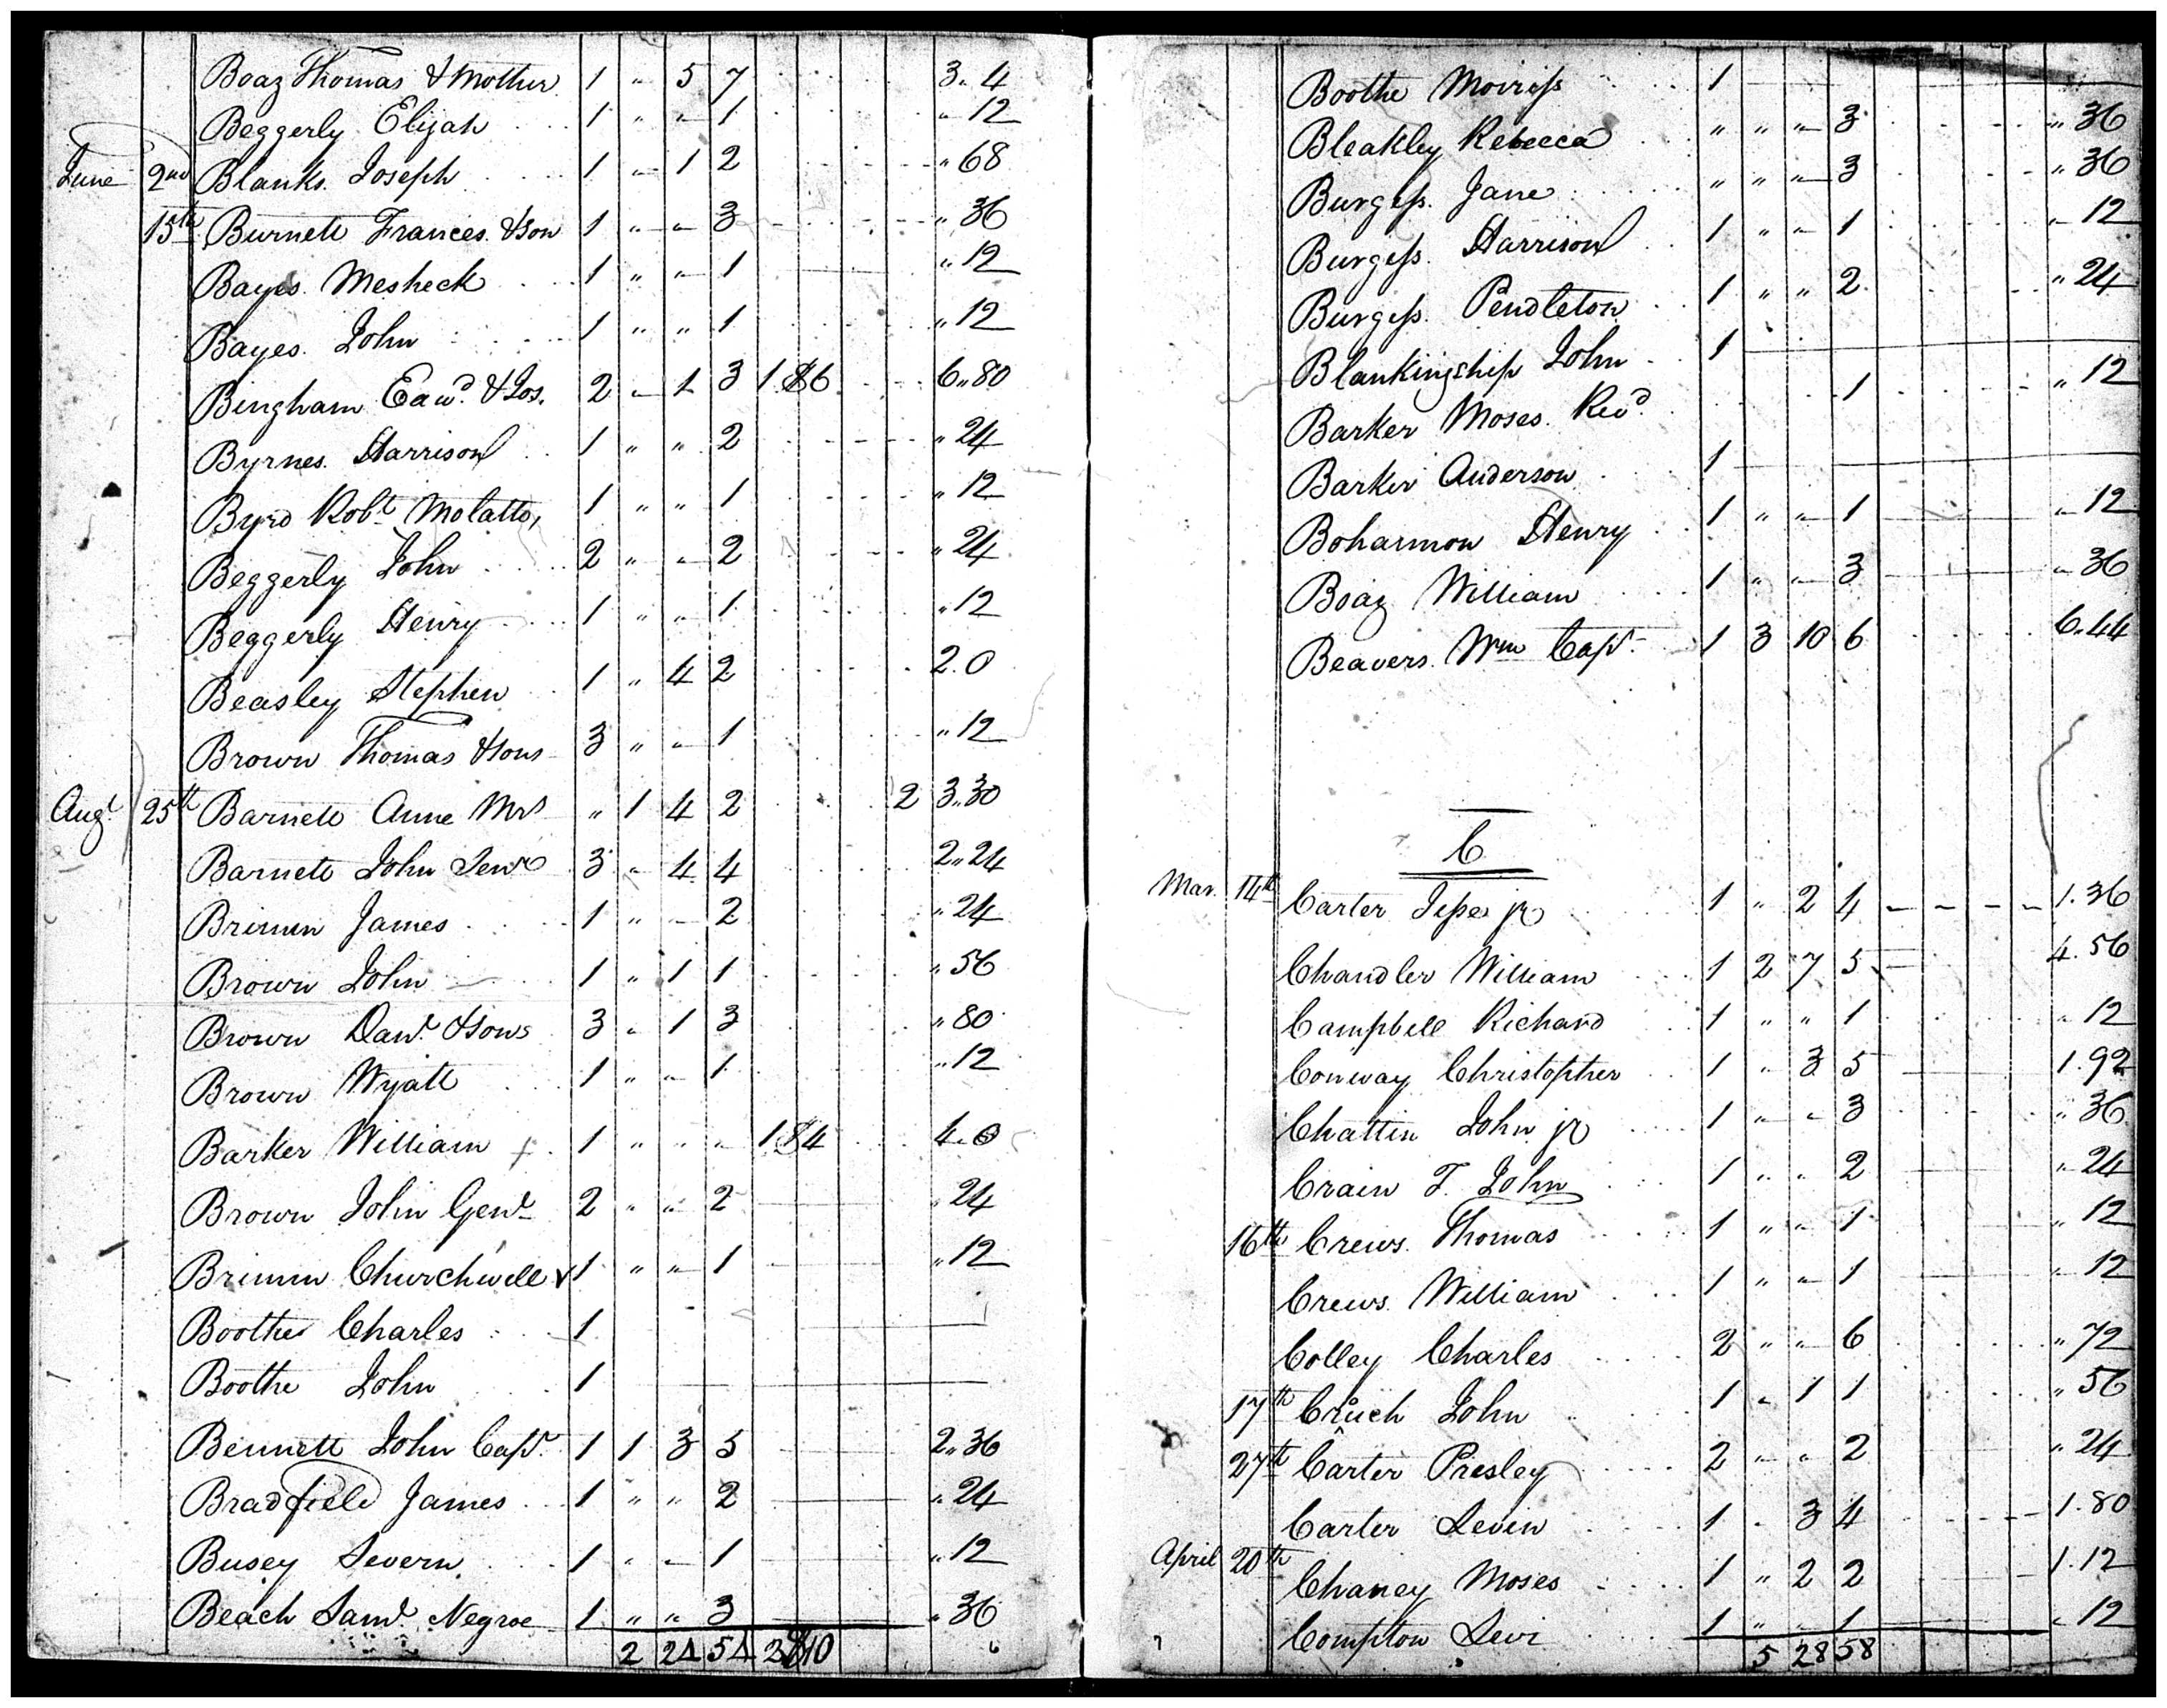 Boaz Thomas & Mother 1 " 5 7 3.. 4
Beggerly Elijah 1 " " 1 " 12
June 2nd Blanks Joseph 1 " 1 2 " 68
15th Burnett Frances & Son 1 " " 3 " 36
Bayes Mesheck 1 " " 1 " 12
Bayes John 1 " " 1 " 12
Bingham Edwd & Jos. 2 " 1 3 1 $6 6.. 80
Byrnes Harrison 1 " " 2 " 24
Byrd Robt Molatto, 1 " " 1 " 12
Beggerly John 2 " " 2 " 24
Beggerly Henry 1 " " 1 " 12
Beasley Stephen 1 " 4 2 2. 0
Brown Thomas & sons 3 " " 1 " 12
Augt 25th Barnett Anne Mrs " 1 4 2 2 3.. 30
Barnett John Senr 3 " 4 4 2.. 24
Brimm James 1 " " 2 " 24
Brown John 1 " 1 1 " 56
Brown Danl & Sons 3 " 1 3 " 80
Brown Wyatt 1 " " 1 " 12
Barker William 1 " " " 1 $4 4.. 0
Brown John Genl 2 " " 2 " 24
Brimm Churchwell 1 " " 1 " 12
Boothe Charles 1
Boothe John 1
Bennett John Capt 1 1 3 5 2.. 36
Bradfield James 1 " " 2 " 24
Busey Severn 1 " " 1 " 12
Beach Saml Negroe 1 " " 3 " 36
2 24 54 2 $10
Boothe Morriss 1
Bleakley Rebecca " " " 3 " 36
Burgess Jane " " " 3 " 36
Burgess Harrison 1 " " 1 " 12
Burgess Pendleton 1 " " 2 " 24
Blankingship John 1
Barker Moses Revd 1 " 12
Barker Anderson 1
Bohannon Henry 1 " " 1 " 12
Boaz William 1 " " 3 " 36
Beavers Wm Capt 1 3 10 6 6.. 44
C
Mar. 14th Carter Jesse jr 1 " 2 4 1. 36
Chandler William 1 2 7 5 4. 56
Campbell Richard 1 " " 1 " 12
Conway Christopher 1 " 3 5 1. 92
Chattin John jr 1 " " 3 " 36
Crain T. John 1 " " 2 " 24
16th Crews Thomas 1 " " 1 " 12
Crews William 1 " " 1 " 12
Colley Charles 2 " " 6 " 72
17th John 1 " 1 1 " 56
27th Carter Presley 2 " " 2 " 24
Carter Levin 1 " 3 4 1. 80
April 20th Chaney Moses 1 " 2 2 1. 12
Compton Levi 1 " " 1 " 12
5 28 58